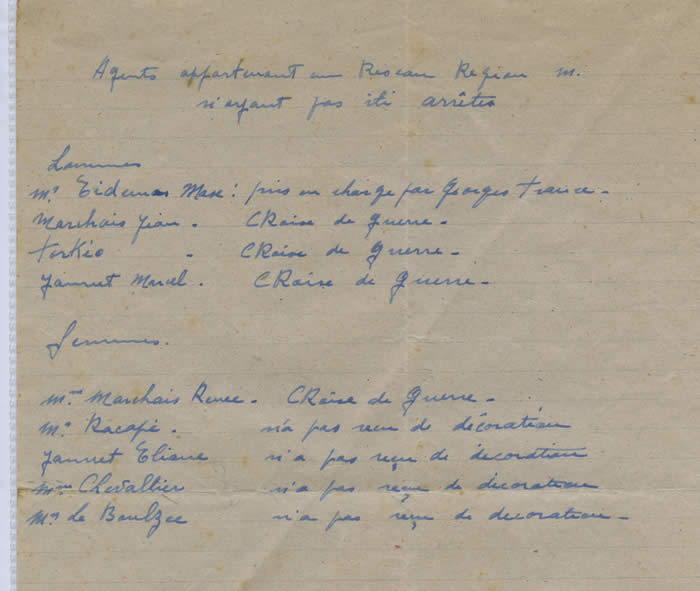 Agents appartenant au Reseau Region M.
n'ayant pas été arrêtés
Hommes
Mr Eidemas Max: pris en charge par Georges France -
Marchais Jean - CRoise de Guerre -
Torkéo - CRoise de Guerre -
Jannet Marcel . CRoise de Guerre -
Femmes.
Mme Marchais Renée - CRoise de Guerre -
Me Racapé . n'a pas reçu de décoration
Jannet Eliane n'a pas reçu de decoration
Mme Chevallier n'a pas reçue de decoration
Me Le Boulzec n'a pas reçue de decoration -